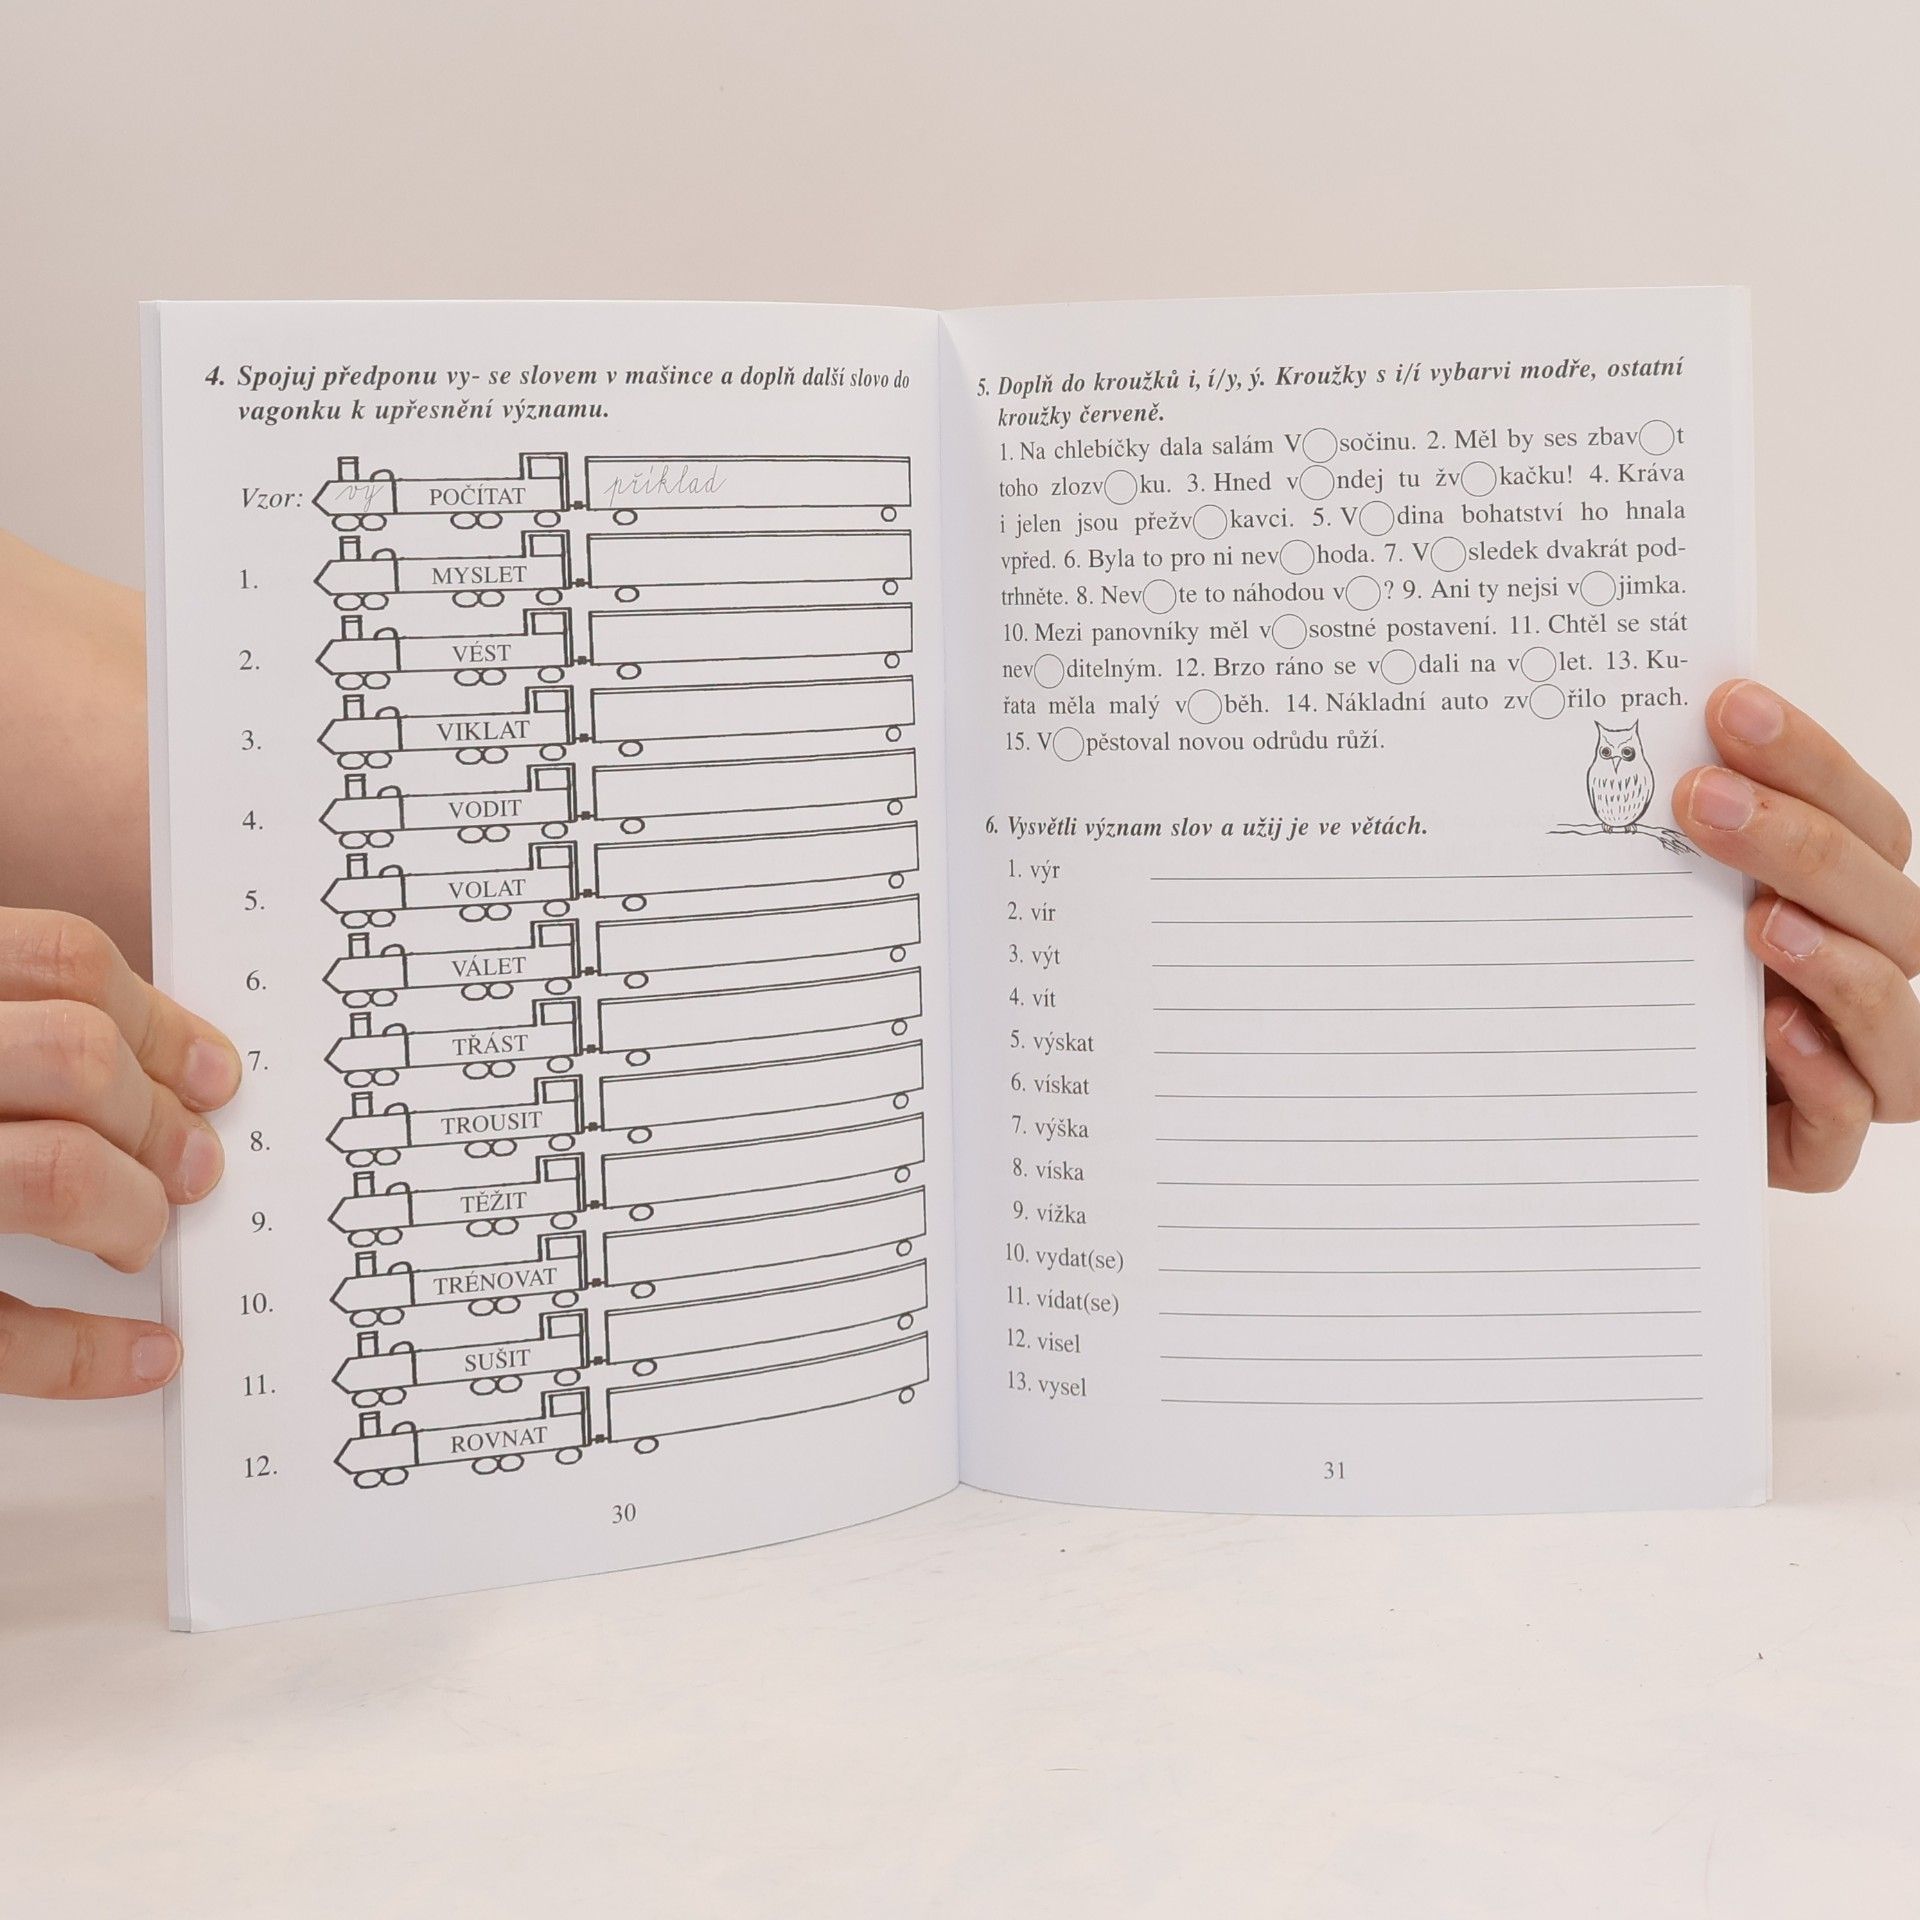 4. Spojuj předponu vy- se slovem v mašince a doplň další slovo do
vagonku k upřesnění významu.
Vzor: vy POČÍTAT příklad
1. MYSLET
2. VÉST
3. VIKLAT
4. VODIT
5. VOLAT
6. VÁLET
7. TŘÁST
8. TROUSIT
9. TĚŽIT
10. TRÉNOVAT
11. SUŠIT
12. ROVNAT
30
5. Doplň do kroužků i, í/y, ý. Kroužky s i/í vybarvi modře, ostatní
kroužky červeně.
1. Na chlebíčky dala salám V◯sočinu. 2. Měl by ses zbav◯t
toho zlozv◯ku. 3. Hned v◯ndej tu žv◯kačku! 4. Kráva
i jelen jsou přežv◯kavci. 5. V◯dina bohatství ho hnala
vpřed. 6. Byla to pro ni nev◯hoda. 7. V◯sledek dvakrát pod-
trhněte. 8. Nev◯te to náhodou v◯? 9. Ani ty nejsi v◯jimka.
10. Mezi panovníky měl v◯sostné postavení. 11. Chtěl se stát
nev◯ditelným. 12. Brzo ráno se v◯dali na v◯let. 13. Ku-
řata měla malý v◯běh. 14. Nákladní auto zv◯řilo prach.
15. V◯pěstoval novou odrůdu růží.
6. Vysvětli význam slov a užij je ve větách.
1. výr
2. vír
3. výt
4. vít
5. výskat
6. vískat
7. výška
8. víska
9. vížka
10. vydat(se)
11. vídat(se)
12. visel
13. vysel
31